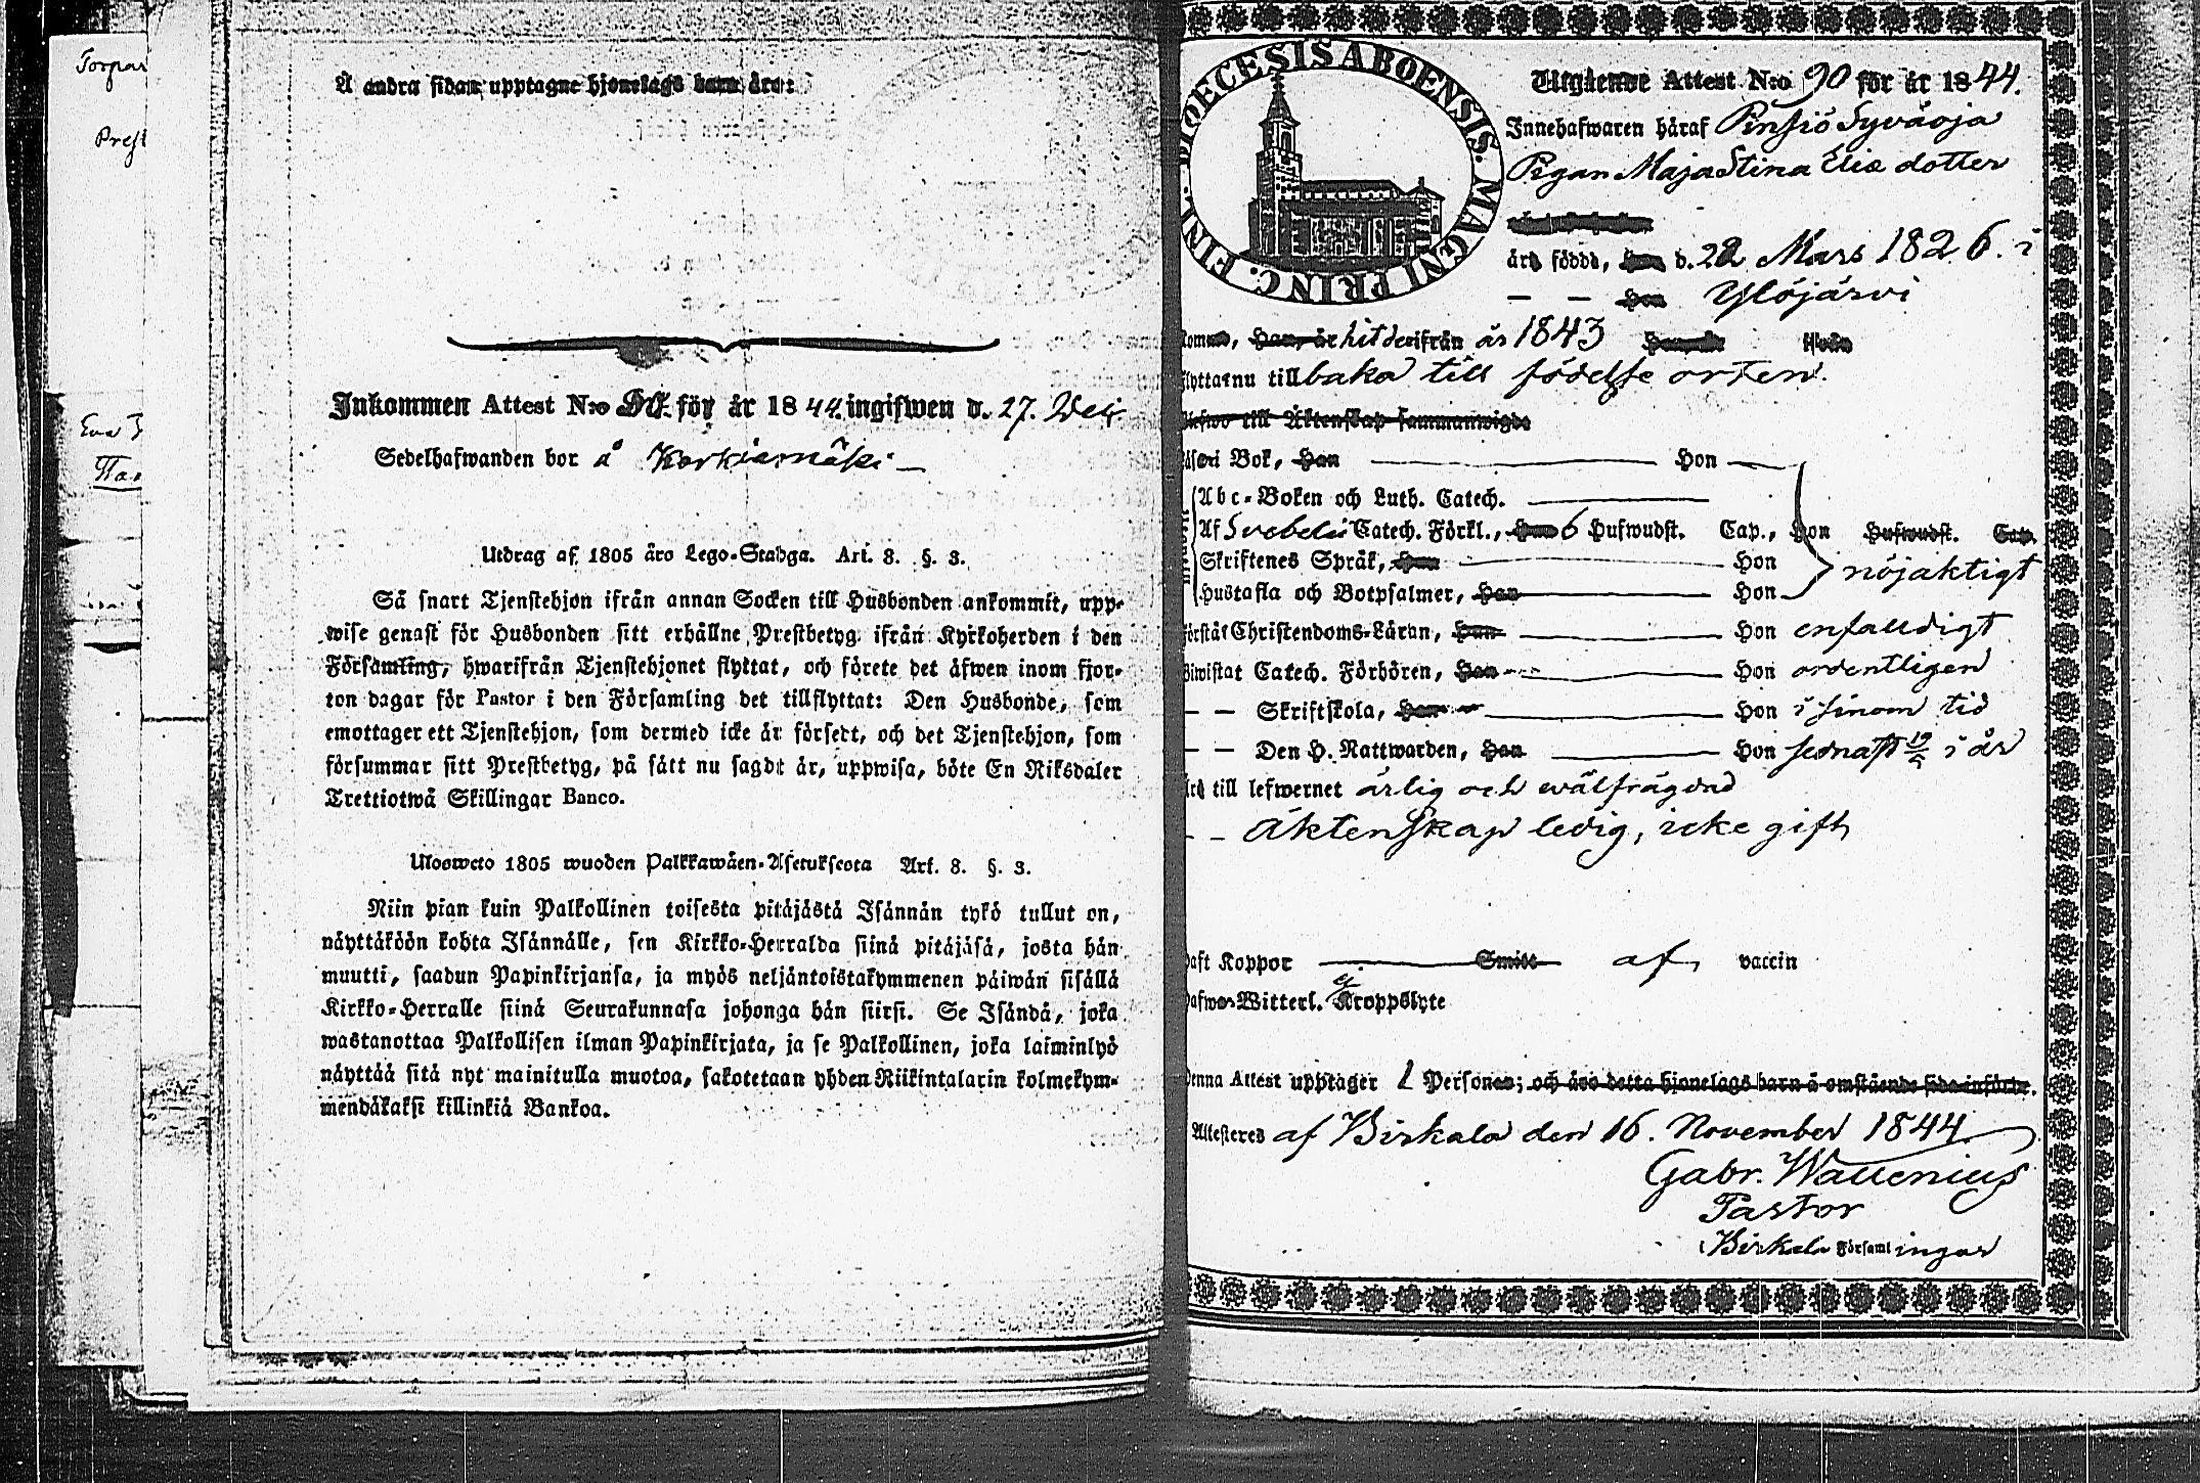 Torpar
Prest
Eva
Å andra sidan upptagne hjonelags barn äro:
Inkommen Attest N:o för år 1844. ingifwen d. 27. Dec
Sedelhafwanden bor å Korkiamäki
Utdrag af 1805 åro Lego-Stadga. Art. 8. §. 3.
Så snart Tjenstehjon ifrån annan Socken till Husbonden ankommit, upp-
wise genast för Husbonden sitt erhållne Prestbetyg ifrån Kyrkoherden i den
Församling, hwarifrån Tjenstehjonet flyttat, och förete det äfwen inom fjor-
ton dagar för Pastor i den Församling det tillflyttat: Den Husbonde, som
emottager ett Tjenstehjon, som dermed icke är försedt, och det Tjenstehjon, som
försummar sitt Prestbetyg, på sätt nu sagdt är, uppwisa, böte En Riksdaler
Trettiotwå Skillingar Banco.
Ulosweto 1805 wuoden Palkkawäen-Asetuksesta Art. 8. §. 3.
Niin pian kuin Palkollinen toisesta pitäjästä Isännän tykö tullut on,
näyttäköön kohta Isännälle, sen Kirkko-Herralda siinä pitäjäsä, josta hän
muutti, saadun Papinkirjansa, ja myös neljäntoistakymmenen päiwän sisällä
Kirkko-Herralle siinä Seurakunnasa johonga hän siirsi. Se Isändä, joka
wastanottaa Palkollisen ilman Papinkirjata, ja se Palkollinen, joka laiminlyö
näyttää sitä nyt mainitulla muotoa, sakotetaan yhden Riikintalarin kolmekym-
mendäkaksi killinkiä Bankoa.
DIOECESIS ABOENSIS. MAGNI PRINC. FINL.
Utgående Attest N:o 90 för år 1844.
Innehafwaren häraf Pinsiö Syväoja
Pigan Maja Stina Eliæ dotter
äro födde, Han d. 22 Mars 1826. i
— — Hon Ylöjärvi
komne, Han, år hit derifrån år 1843 från
flytta nu till baka till födelse orten.
Blefwo till Äktenskap sammanwigde
läsa i Bok, Han Hon
Abc-Boken och Luth. Catech.
Af Svebelii Catech. Förkl., Han 6 Hufwudst. Cap., Hon Hufwudst. Cap.
Skriftenes Språk, Han Hon nöjaktigt
Hustafla och Botpsalmer, Han Hon
förstår Christendoms-Läran, Han Hon enfaldigt
Biwistat Catech. Förhören, Han Hon ordentligen
— — Skriftskola, Han Hon i sinom tid
— — Den H. Nattwarden, Han Hon senast i år
äro till lefwernet ärlig och wälfrägdad
— — Äktenskap ledig, icke gift
haft Koppor Smitt af vaccin
hafwa Witterl. ej Kroppslyte
Denna Attest upptager 1 Persones; och äro detta hjonelags barn å omstående sida införde.
Attesteres af Birkala den 16. November 1844.
Gabr. Wallenius
Pastor
i Birkala Församlingar